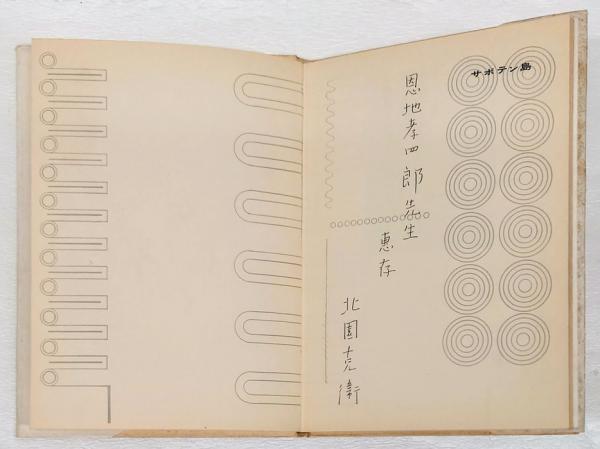 サボテン島
恩地孝四郎先生
恵存
北園克衛